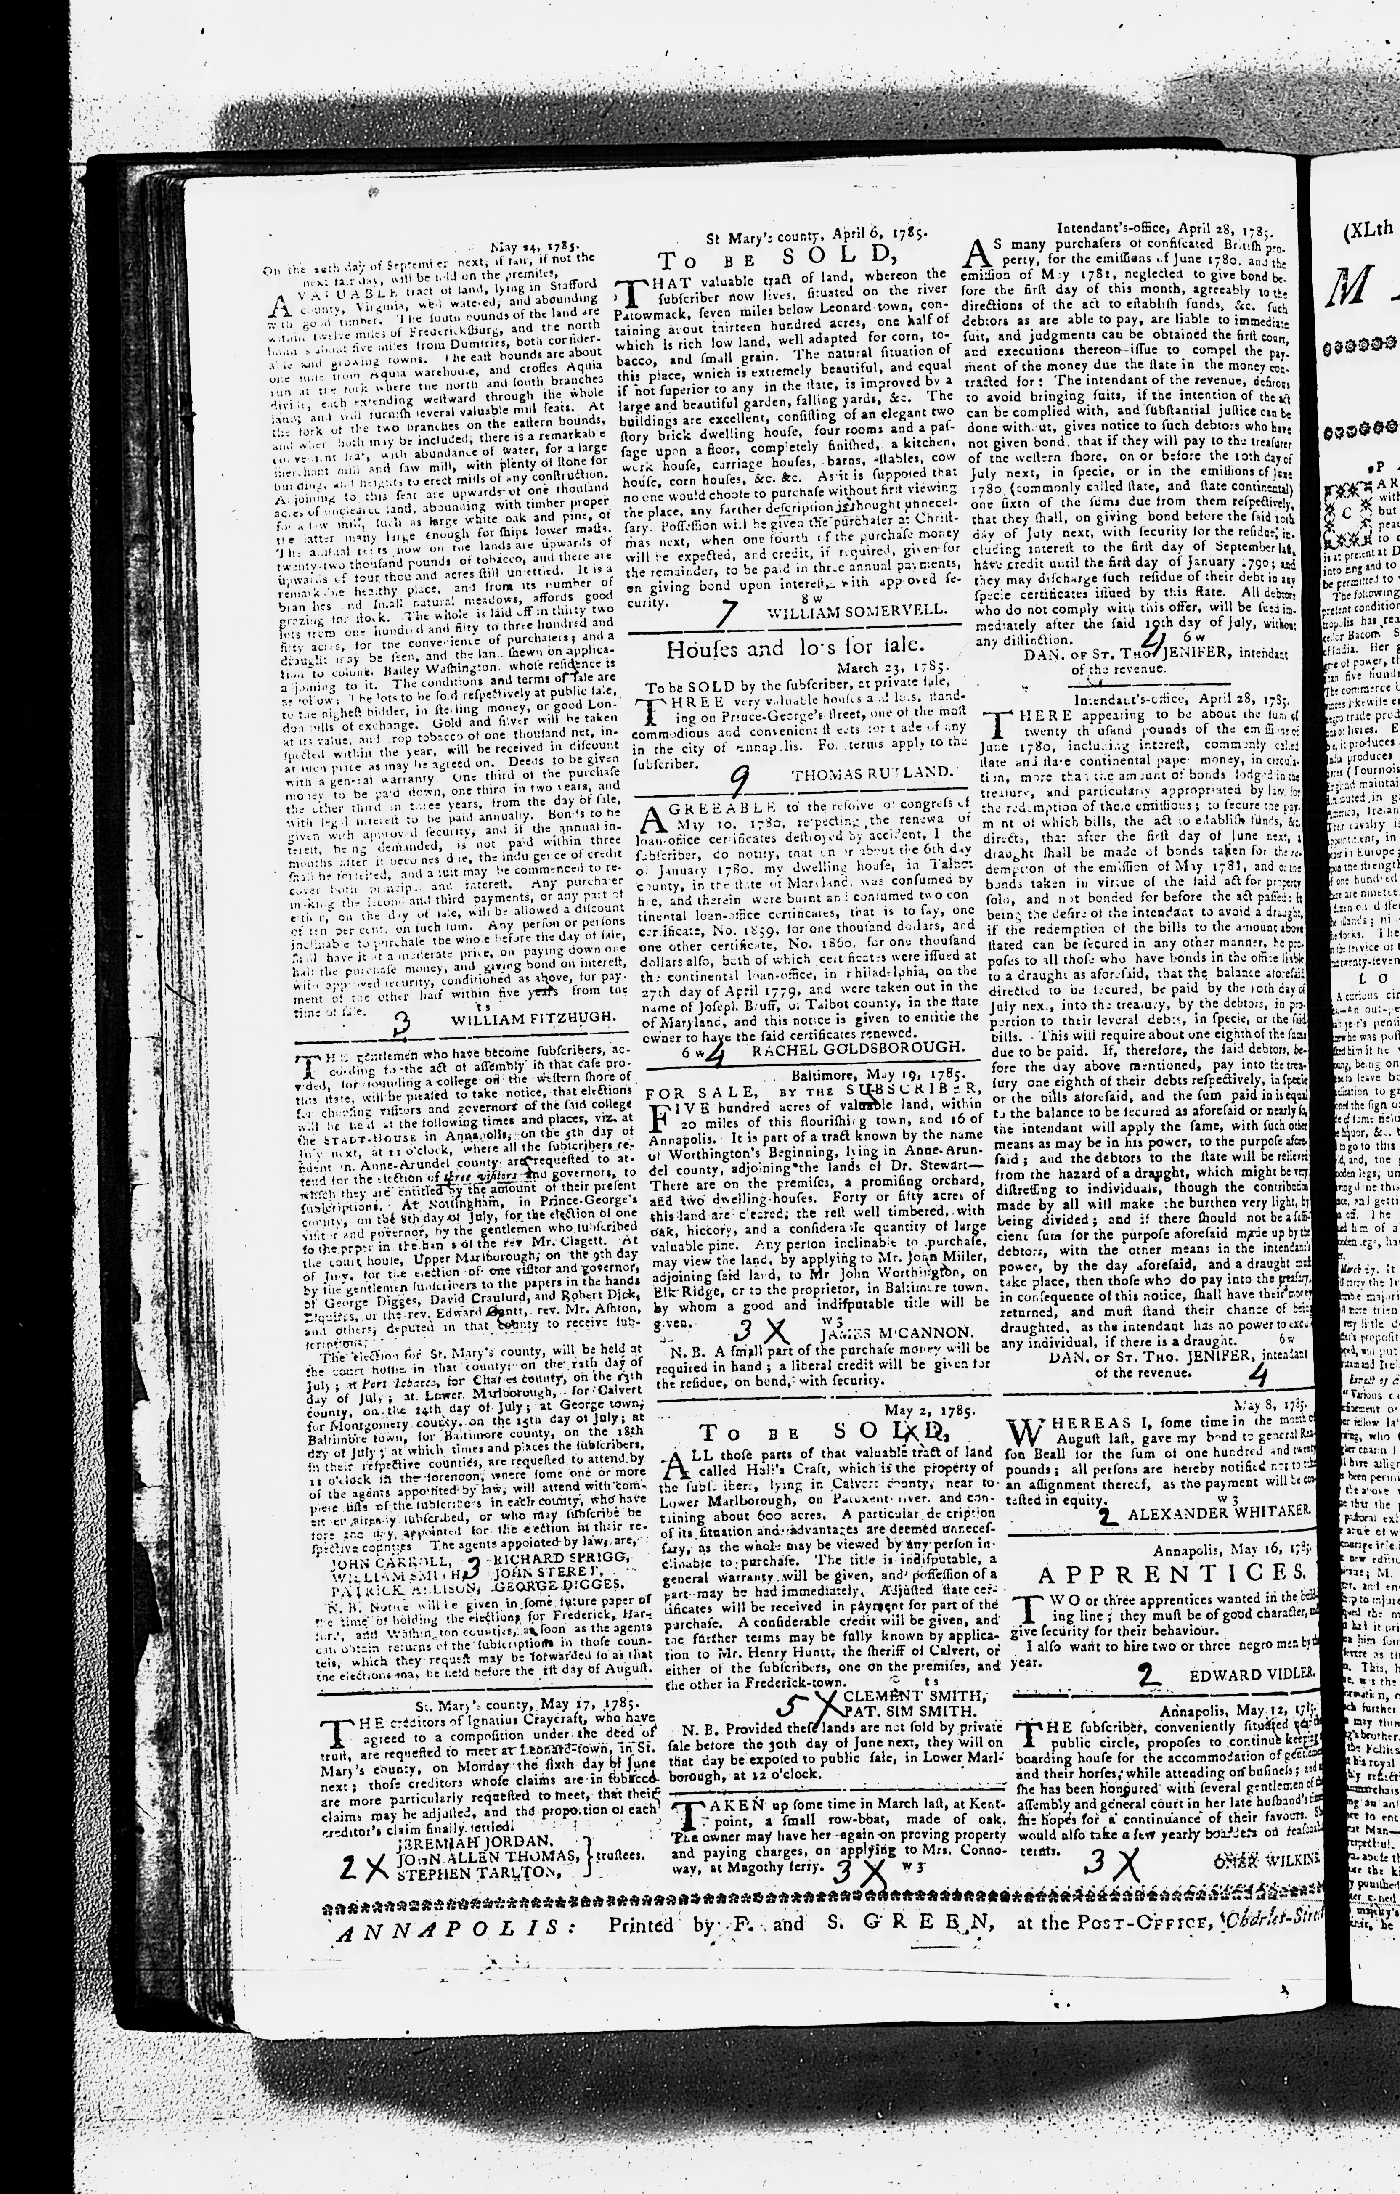 May 24, 1785.
On the 20th day of September next, if fair, if not the
next fair day, will be sold on the premises,
A VALUABLE tract of land, lying in Stafford
county, Virginia, well watered, and abounding
with good timber. The south bounds of the land are
within twelve miles of Fredericksburg, and the north
bounds about five miles from Dumfries, both consider-
able and growing towns. The east bounds are about
one mile from Aquia warehouse, and crosses Aquia
run at the fork where the north and south branches
divide, each extending westward through the whole
land, and will furnish several valuable mill seats. At
the fork of the two branches on the eastern bounds,
and where both may be included, there is a remarkable
convenient seat, with abundance of water, for a large
merchant mill and saw mill, with plenty of stone for
building, and heights to erect mills of any construction.
Adjoining to this seat are upwards of one thousand
acres of uncleared land, abounding with timber proper
for a saw mill, such as large white oak and pine, of
the latter many large enough for ships lower masts.
The annual rents now on the lands are upwards of
twenty-two thousand pounds of tobacco, and there are
upwards of four thousand acres still untenanted. It is a
remarkable healthy place, and from its number of
branches and small natural meadows, affords good
grazing for stock. The whole is laid off in thirty two
lots from one hundred and fifty to three hundred and
fifty acres, for the convenience of purchasers; and a
draught may be seen, and the land shewn on applica-
tion to colonel Bailey Washington, whose residence is
adjoining to it. The conditions and terms of sale are
as follow: The lots to be sold respectively at public sale,
to the highest bidder, in sterling money, or good Lon-
don bills of exchange. Gold and silver will be taken
at its value, and crop tobacco of one thousand net, in-
spected within the year, will be received in discount
at such price as may be agreed on. Deeds to be given
with a general warranty. One third of the purchase
money to be paid down, one third in two years, and
the other third in three years, from the day of sale,
with legal interest to be paid annually. Bonds to be
given with approved security, and if the annual in-
terest, being demanded, is not paid within three
months after it becomes due, the indulgence of credit
shall be forfeited, and a suit may be commenced to re-
cover both principal and interest. Any purchaser
making the second and third payments, or any part of
either, on the day of sale, will be allowed a discount
of ten per cent. on such sum. Any person or persons
inclinable to purchase the whole before the day of sale,
shall have it at a moderate price, on paying down one
half the purchase money, and giving bond on interest,
with approved security, conditioned as above, for pay-
ment of the other half within five years from the
time of sale. ts
3 WILLIAM FITZHUGH.
THE gentlemen who have become subscribers, ac-
cording to the act of assembly in that case pro-
vided, for founding a college on the western shore of
this state, will be pleased to take notice, that elections
for choosing visitors and governors of the said college
will be held at the following times and places, viz. at
the STADT-HOUSE in Annapolis, on the 5th day of
July next, at 11 o'clock, where all the subscribers re-
sident in Anne-Arundel county are requested to at-
tend for the election of three visitors and governors, to
which they are entitled by the amount of their present
subscriptions. At Nottingham, in Prince-George's
county, on the 8th day of July, for the election of one
visitor and governor, by the gentlemen who subscribed
to the paper in the hands of the rev Mr. Clagett. At
the court house, Upper Marlborough, on the 9th day
of July, for the election of one visitor and governor,
by the gentlemen subscribers to the papers in the hands
of George Digges, David Craufurd, and Robert Dick,
Esquires, or the rev. Edward Gantt, rev. Mr. Ashton,
and others, deputed in that county to receive sub-
scriptions.
The election for St. Mary's county, will be held at
the court house in that county, on the 12th day of
July; at Port Tobacco, for Charles county, on the 13th
day of July; at Lower Marlborough, for Calvert
county, on the 14th day of July; at George town,
for Montgomery county, on the 15th day of July; at
Baltimore town, for Baltimore county, on the 18th
day of July; at which times and places the subscribers,
in their respective counties, are requested to attend by
11 o'clock in the forenoon, where some one or more
of the agents appointed by law, will attend with com-
plete lists of the subscribers in each county, who have
either already subscribed, or who may subscribe be
fore the day appointed for the election in their re-
spective counties The agents appointed by law, are,
JOHN CARROLL, RICHARD SPRIGG,
WILLIAM SMITH, 3 JOHN STERET,
PATRICK ALLISON, GEORGE DIGGES.
N. B. Notice will be given in some future paper of
the time of holding the elections for Frederick, Har-
ford, and Washington counties, as soon as the agents
can obtain returns of the subscriptions in those coun-
ties, which they request may be forwarded so as that
the elections may be held before the 1st day of August.
St. Mary's county, May 17, 1785.
THE creditors of Ignatius Craycraft, who have
agreed to a composition under the deed of
trust, are requested to meet at Leonard-town, in St.
Mary's county, on Monday the sixth day of June
next; those creditors whose claims are in tobacco
are more particularly requested to meet, that their
claims may be adjusted, and the proportion of each
creditor's claim finally settled.
JEREMIAH JORDAN,
2 X JOHN ALLEN THOMAS, } trustees.
STEPHEN TARLTON,
St Mary's county, April 6, 1785.
TO BE SOLD,
THAT valuable tract of land, whereon the
subscriber now lives, situated on the river
Patowmack, seven miles below Leonard town, con-
taining about thirteen hundred acres, one half of
which is rich low land, well adapted for corn, to-
bacco, and small grain. The natural situation of
this place, which is extremely beautiful, and equal
if not superior to any in the state, is improved by a
large and beautiful garden, falling yards, &c. The
buildings are excellent, consisting of an elegant two
story brick dwelling house, four rooms and a pas-
sage upon a floor, completely finished, a kitchen,
work house, carriage houses, barns, stables, cow
house, corn houses, &c. &c. As it is supposed that
no one would choose to purchase without first viewing
the place, any farther description is thought unneces-
sary. Possession will be given the purchaser at Christ-
mas next, when one fourth of the purchase money
will be expected, and credit, if required, given for
the remainder, to be paid in three annual payments,
on giving bond upon interest, with approved se-
curity. 8 w
7 WILLIAM SOMERVELL.
Houses and lots for sale.
March 23, 1785.
To be SOLD by the subscriber, at private sale,
THREE very valuable houses and lots, stand-
ing on Prince-George's street, one of the most
commodious and convenient streets for trade of any
in the city of Annapolis. For terms apply to the
subscriber.
9 THOMAS RUTLAND.
AGREEABLE to the resolve of congress of
May 10, 1780, respecting the renewal of
loan-office certificates destroyed by accident, I the
subscriber, do notify, that on or about the 6th day
of January 1780, my dwelling house, in Talbot
county, in the state of Maryland, was consumed by
fire, and therein were burnt and consumed two con
tinental loan-office certificates, that is to say, one
certificate, No. 1859, for one thousand dollars, and
one other certificate, No. 1860, for one thousand
dollars also, both of which certificates were issued at
the continental loan-office, in Philadelphia, on the
27th day of April 1779, and were taken out in the
name of Joseph Bruff, of Talbot county, in the state
of Maryland, and this notice is given to entitle the
owner to have the said certificates renewed.
6 w 4 RACHEL GOLDSBOROUGH.
Baltimore, May 19, 1785.
FOR SALE, BY THE SUBSCRIBER,
FIVE hundred acres of valuable land, within
20 miles of this flourishing town, and 16 of
Annapolis. It is part of a tract known by the name
of Worthington's Beginning, lying in Anne-Arun-
del county, adjoining the lands of Dr. Stewart—
There are on the premises, a promising orchard,
and two dwelling-houses. Forty or fifty acres of
this land are cleared; the rest well timbered, with
oak, hiccory, and a considerable quantity of large
valuable pine. Any person inclinable to purchase,
may view the land, by applying to Mr. John Miller,
adjoining said land, to Mr John Worthington, on
Elk-Ridge, or to the proprietor, in Baltimore town,
by whom a good and indisputable title will be
given. w 3
3 X JAMES M'CANNON.
N. B. A small part of the purchase money will be
required in hand; a liberal credit will be given for
the residue, on bond, with security.
May 2, 1785.
TO BE SOLD,
ALL those parts of that valuable tract of land
called Hall's Craft, which is the property of
the subscribers, lying in Calvert county, near to
Lower Marlborough, on Patuxent river, and con-
taining about 600 acres. A particular description
of its situation and advantages are deemed unneces-
sary, as the whole may be viewed by any person in-
clinable to purchase. The title is indisputable, a
general warranty will be given, and possession of a
part may be had immediately. Adjusted state cer-
tificates will be received in payment for part of the
purchase. A considerable credit will be given, and
the further terms may be fully known by applica-
tion to Mr. Henry Huntt, the sheriff of Calvert, or
either of the subscribers, one on the premises, and
the other in Frederick-town. ts
5 X CLEMENT SMITH,
PAT. SIM SMITH.
N. B. Provided these lands are not sold by private
sale before the 30th day of June next, they will on
that day be exposed to public sale, in Lower Marl-
borough, at 12 o'clock.
TAKEN up some time in March last, at Kent-
point, a small row-boat, made of oak.
The owner may have her again on proving property
and paying charges, on applying to Mrs. Conno-
way, at Magothy ferry. 3 X w 3
Intendant's-office, April 28, 1785.
AS many purchasers of confiscated British pro-
perty, for the emissions of June 1780, and the
emission of May 1781, neglected to give bond be-
fore the first day of this month, agreeably to the
directions of the act to establish funds, &c. such
debtors as are able to pay, are liable to immediate
suit, and judgments can be obtained the first court,
and executions thereon issue to compel the pay-
ment of the money due the state in the money con-
tracted for: The intendant of the revenue, desirous
to avoid bringing suits, if the intention of the act
can be complied with, and substantial justice can be
done without, gives notice to such debtors who have
not given bond, that if they will pay to the treasurer
of the western shore, on or before the 10th day of
July next, in specie, or in the emissions of June
1780 (commonly called state, and state continental)
one sixth of the sums due from them respectively,
that they shall, on giving bond before the said 10th
day of July next, with security for the residue, in-
cluding interest to the first day of September last,
have credit until the first day of January 1790; and
they may discharge such residue of their debt in any
specie certificates issued by this state. All debtors
who do not comply with this offer, will be sued im-
mediately after the said 10th day of July, without
any distinction. 4 6 w
DAN. OF ST. THO. JENIFER, intendant
of the revenue.
Intendant's-office, April 28, 1785.
THERE appearing to be about the sum of
twenty thousand pounds of the emissions of
June 1780, including interest, commonly called
state and state continental paper money, in circula-
tion, more than the amount of bonds lodged in the
treasury, and particularly appropriated by law for
the redemption of these emissions; to secure the pay-
ment of which bills, the act to establish funds, &c.
directs, that after the first day of June next, a
draught shall be made of bonds taken for the re-
demption of the emission of May 1781, and of the
bonds taken in virtue of the said act for property
sold, and not bonded for before the act passed: It
being the desire of the intendant to avoid a draught,
if the redemption of the bills to the amount above
stated can be secured in any other manner, he pro-
poses to all those who have bonds in the office liable
to a draught as aforesaid, that the balance aforesaid
directed to be secured, be paid by the 10th day of
July next, into the treasury, by the debtors, in pro-
portion to their several debts, in specie, or the said
bills. This will require about one eighth of the sums
due to be paid. If, therefore, the said debtors, be-
fore the day above mentioned, pay into the trea-
sury one eighth of their debts respectively, in specie
or the bills aforesaid, and the sum paid in is equal
to the balance to be secured as aforesaid or nearly so,
the intendant will apply the same, with such other
means as may be in his power, to the purpose afore-
said; and the debtors to the state will be relieved
from the hazard of a draught, which might be very
distressing to individuals, though the contribution
made by all will make the burthen very light, by
being divided; and if there should not be a suffi-
cient sum for the purpose aforesaid made up by the
debtors, with the other means in the intendant's
power, by the day aforesaid, and a draught must
take place, then those who do pay into the treasury,
in consequence of this notice, shall have their money
returned, and must stand their chance of being
draughted, as the intendant has no power to excuse
any individual, if there is a draught. 6 w
DAN. OF ST. THO. JENIFER, intendant
of the revenue. 4
May 8, 1785.
WHEREAS I, some time in the month of
August last, gave my bond to general Rea-
son Beall for the sum of one hundred and twenty
pounds; all persons are hereby notified not to take
an assignment thereof, as the payment will be con-
tested in equity. w 3
2 ALEXANDER WHITAKER.
Annapolis, May 16, 1785.
APPRENTICES.
TWO or three apprentices wanted in the
ing line; they must be of good character, and
give security for their behaviour.
I also want to hire two or three negro men by the
year.
2 EDWARD VIDLER.
Annapolis, May 12, 1785.
THE subscriber, conveniently situated near the
public circle, proposes to continue keeping
boarding house for the accommodation of gentlemen
and their horses, while attending on business; and
she has been honoured with several gentlemen of the
assembly and general court in her late husband's time
she hopes for a continuance of their favours. She
would also take a few yearly boarders on reasonable
terms.
3 X WILKINS.
ANNAPOLIS: Printed by F. and S. GREEN, at the POST-OFFICE, Charles-Street.
(XLth